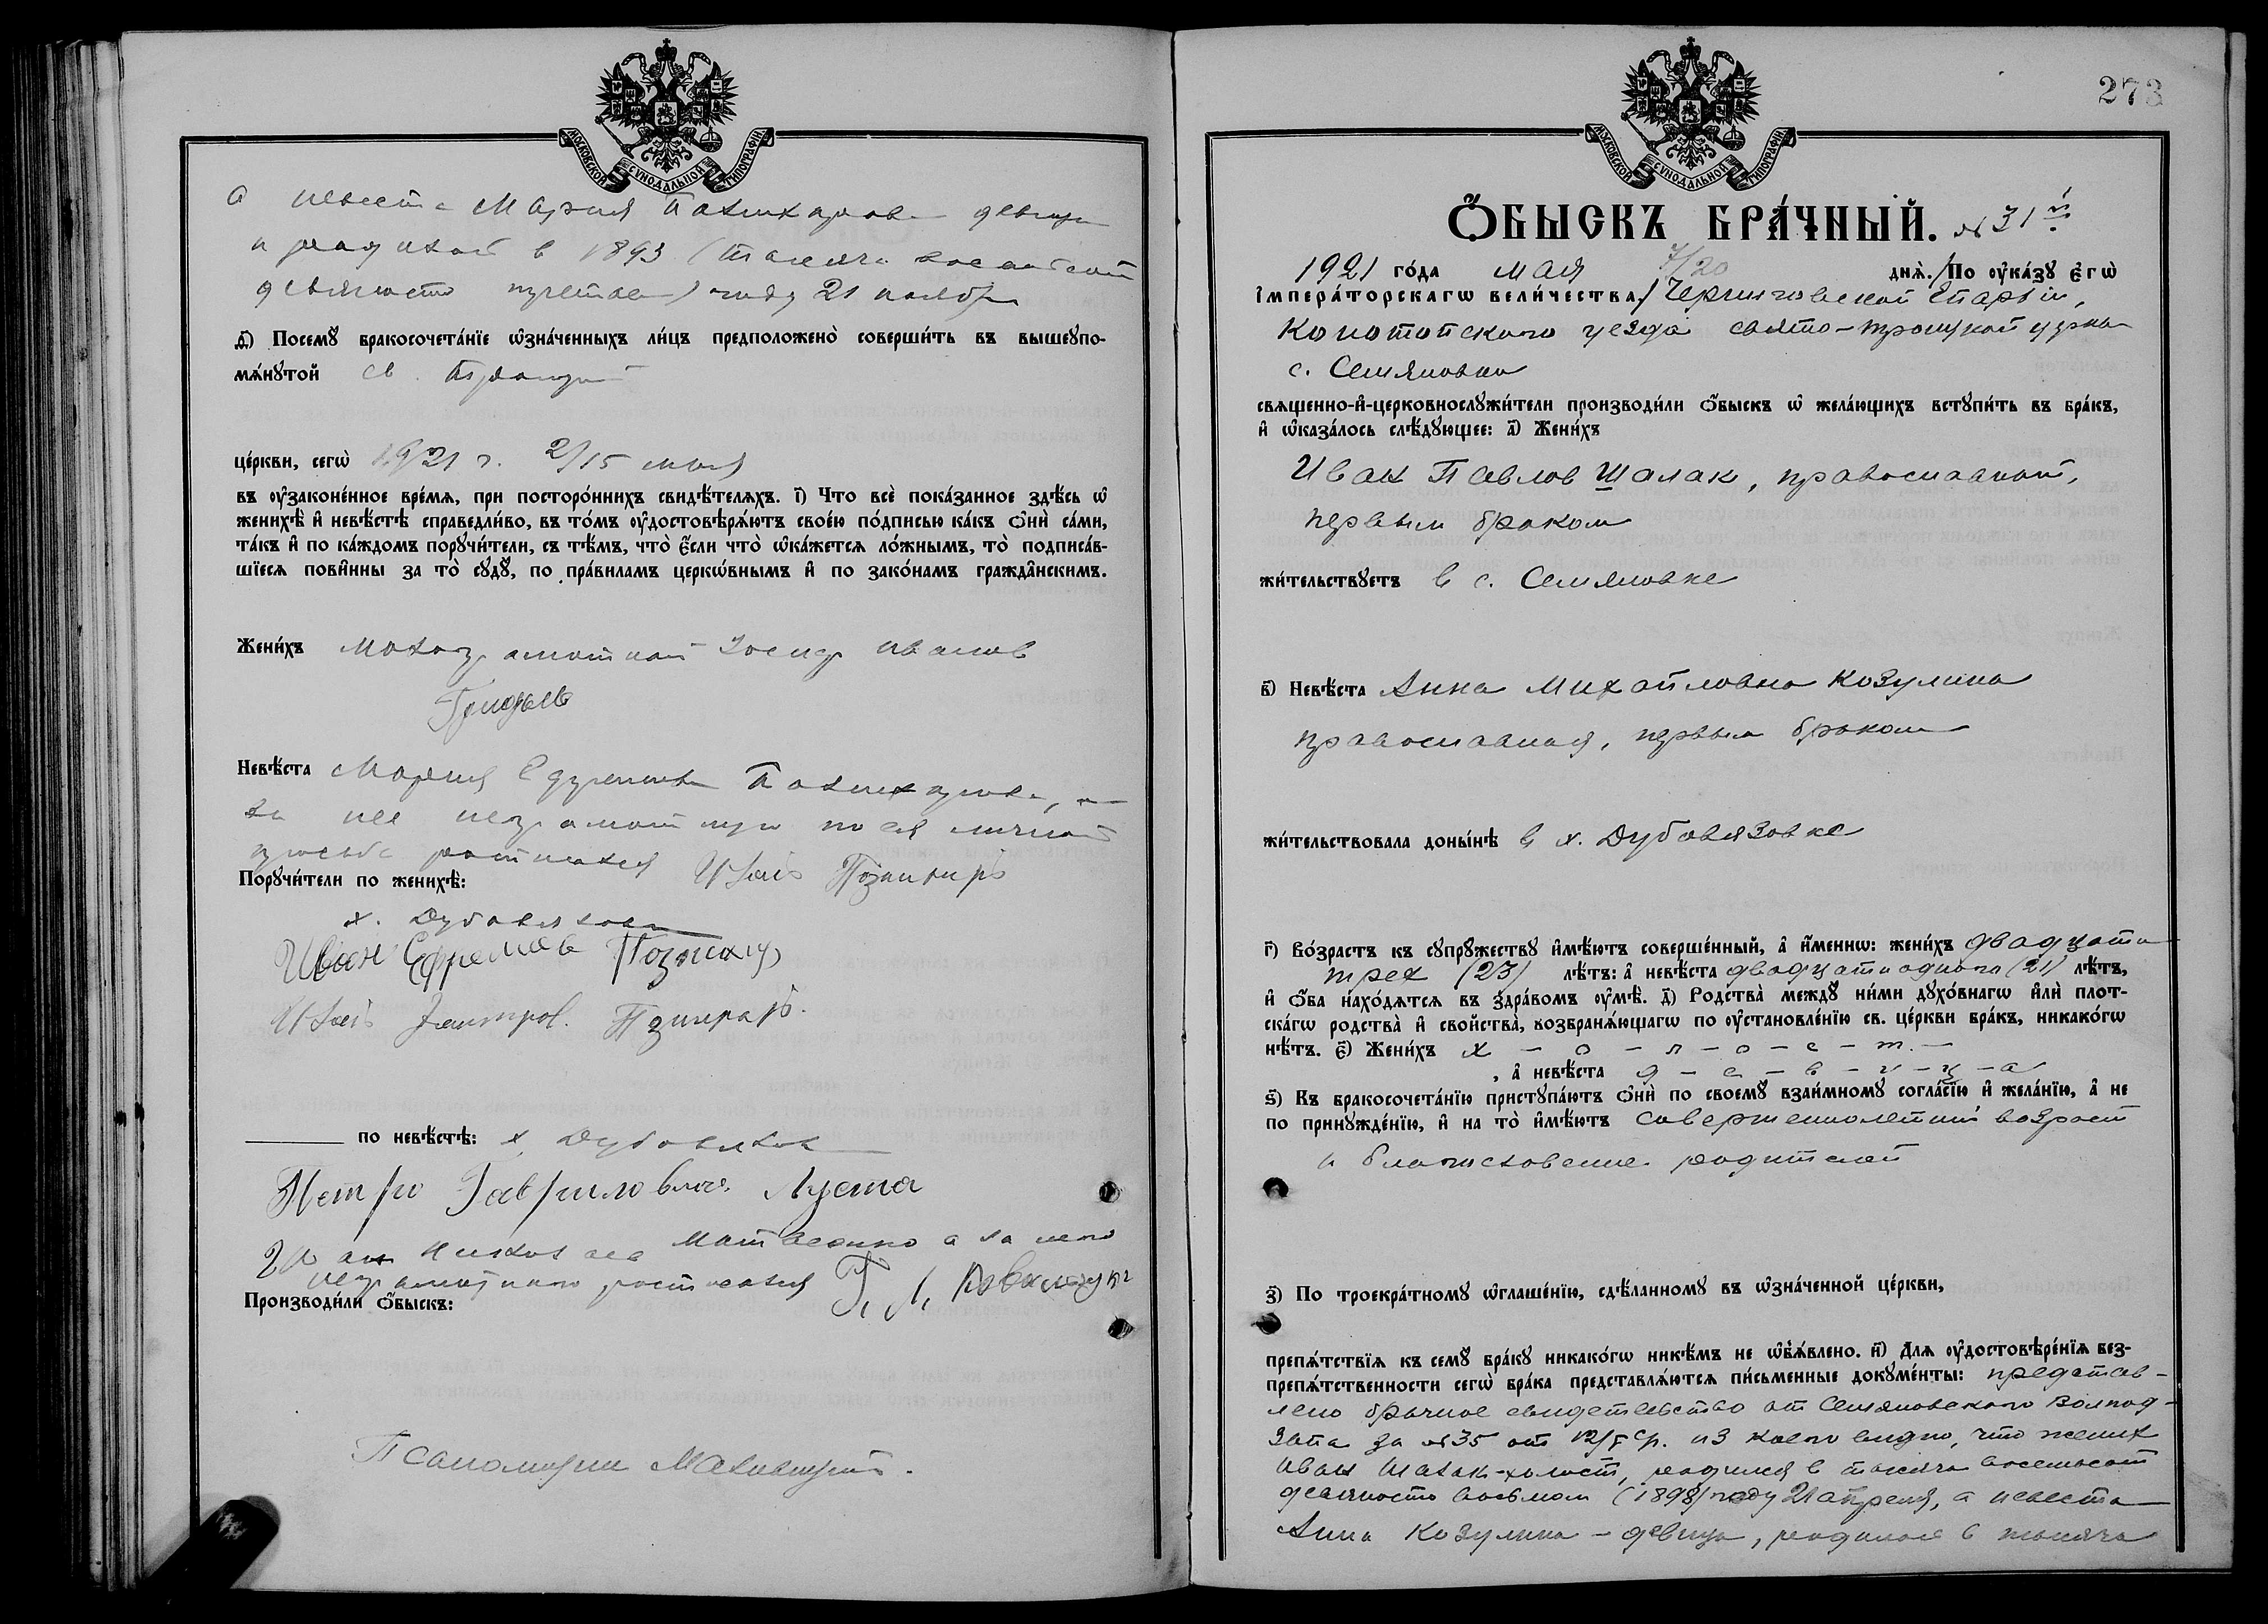 МОСКОВСКОЙ СѴНОДАЛЬНОЙ ТИПОГРАФІИ
а невеста Мария девица
и родилась в 1893 (тысяча восемьсот
девяносто третьем) году 21 ноября
д҃) Посемꙋ̀ бракосочета́нїе ѡ҆зна́ченныхъ ли́цъ предположено̀ соверши́ть въ вышеꙋпо-
мѧ́нꙋтой св. Троицкой
це́ркви, сегѡ̀ 1921 г. 2/15 мая
въ ᲂу҆законе́нное вре́мѧ, при посторо́ннихъ свидѣ́телѧхъ. і҃) Что всѐ пока́занное здѣ́сь ѡ҆
женихѣ̀ и҆ невѣ́стѣ справедли́во, въ то́мъ ᲂу҆достовѣрѧ́ютъ свое́ю по́дписью ка́къ ѻ҆нѝ са́ми,
та́къ и҆ по ка́ждомъ порꙋчи́тели, съ тѣ́мъ, что̀ є҆́сли что̀ ѡ҆ка́жетсѧ ло́жнымъ, то̀ подписа́в-
шїесѧ пови́нны за то̀ сꙋдꙋ̀, по пра́виламъ церкѡ́внымъ и҆ по зако́намъ гражда́нскимъ.
Жени́хъ малограмотный Иванов
Невѣ́ста Мария Ефремовна
за нее неграмотную по ея личной
просьбе расписался
Порꙋчи́тели по женихѣ̀:
х. Дубовязовки
Иван Ефремов
по невѣ́стѣ: х. Дубовязовки
Петро Гаврилович Луста
Матвеенко а за него
неграмотного росписался Г. Л.
Производи́ли ѻ҆́быскъ:
Псаломщик
273
МОСКОВСКОЙ СѴНОДАЛЬНОЙ ТИПОГРАФІИ
Ѻ҆́БЫСКЪ БРА́ЧНЫЙ. № 31й
1921 го́да мая 7/20 днѧ̀. / По ᲂу҆ка́зꙋ є҆гѡ̀
і҆мпера́торскагѡ вели́чества, / Черниговской Епархии,
Конотопского уезда свято-троицкой церкви
с. Семяновки
свѧще́нно-и҆-церковнослꙋжи́тели производи́ли ѻ҆́быскъ ѡ҆ жела́ющихъ встꙋпи́ть въ бра́къ,
и҆ ѡ҆каза́лось слѣ́дꙋющее: а҃) Жени́хъ
Иван Павлов Шалак, православный,
первым браком
жи́тельствꙋетъ в с. Семяновке
в҃) Невѣ́ста Анна Михайловна Козулина
православная, первым браком
жи́тельствовала доны́нѣ в х. Дубовязовке
г҃) Во́зрастъ къ сꙋпрꙋ́жествꙋ и҆мѣ́ютъ соверше́нный, а҆ и҆́меннѡ: жени́хъ двадцати
трех (23) лѣ́тъ: а҆ невѣ́ста двадцати одного (21) лѣ́тъ,
и҆ ѻ҆́ба нахо́дѧтсѧ въ здра́вомъ ᲂу҆мѣ̀. д҃) Родства̀ междꙋ̀ ни́ми дꙋхо́внагѡ и҆лѝ плот-
ска́гѡ родства̀ и҆ свойства̀, возбранѧ́ющагѡ по ᲂу҆становле́нїю св. це́ркви бра́къ, никако́гѡ
нѣ́тъ. є҃) Жени́хъ х – о – л – о – с – т. –
, а҆ невѣ́ста д – е – в – и – ц – а
ѕ҃) Къ бракосочета́нїю пристꙋпа́ютъ ѻ҆нѝ по своемꙋ̀ взаи́мномꙋ согла́сїю и҆ жела́нїю, а҆ не
по принꙋжде́нїю, и҆ на то̀ и҆мѣ́ютъ совершеннолетний возраст
и благословение родителей
з҃) По троекра́тномꙋ ѡ҆глаше́нїю, сдѣ́ланномꙋ въ ѡ҆зна́ченной це́ркви,
препѧ́тствїѧ къ семꙋ̀ бра́кꙋ никако́гѡ никѣ́мъ не ѡ҆б̾ѧ́влено. и҃) Длѧ ᲂу҆достовѣре́нїѧ без-
препѧ́тственности сегѡ̀ бра́ка представлѧ́ютсѧ пи́сьменные докꙋме́нты: представ-
лено брачное свидетельство от Семяновского Волпод-
за № 35 от из коего видно, что жених
Иван Шалак-холост, родился в тысяча восемьсот
девяносто восьмом (1898) году 21 апреля, а невеста
Анна Козулина – девица, родилась в тысяча